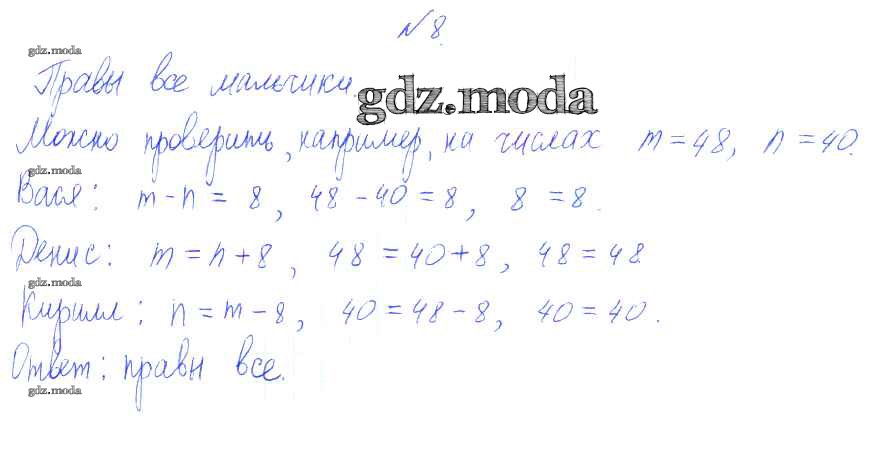 № 8.
gdz.moda
Правы все мальчики.
gdz.moda
Можно проверить, например, на числах m = 48, n = 40.
gdz.moda
Вася: m - n = 8, 48 - 40 = 8, 8 = 8.
Денис: m = n + 8, 48 = 40 + 8, 48 = 48
gdz.moda
Кирилл: n = m - 8, 40 = 48 - 8, 40 = 40.
Ответ: правы все.
gdz.moda